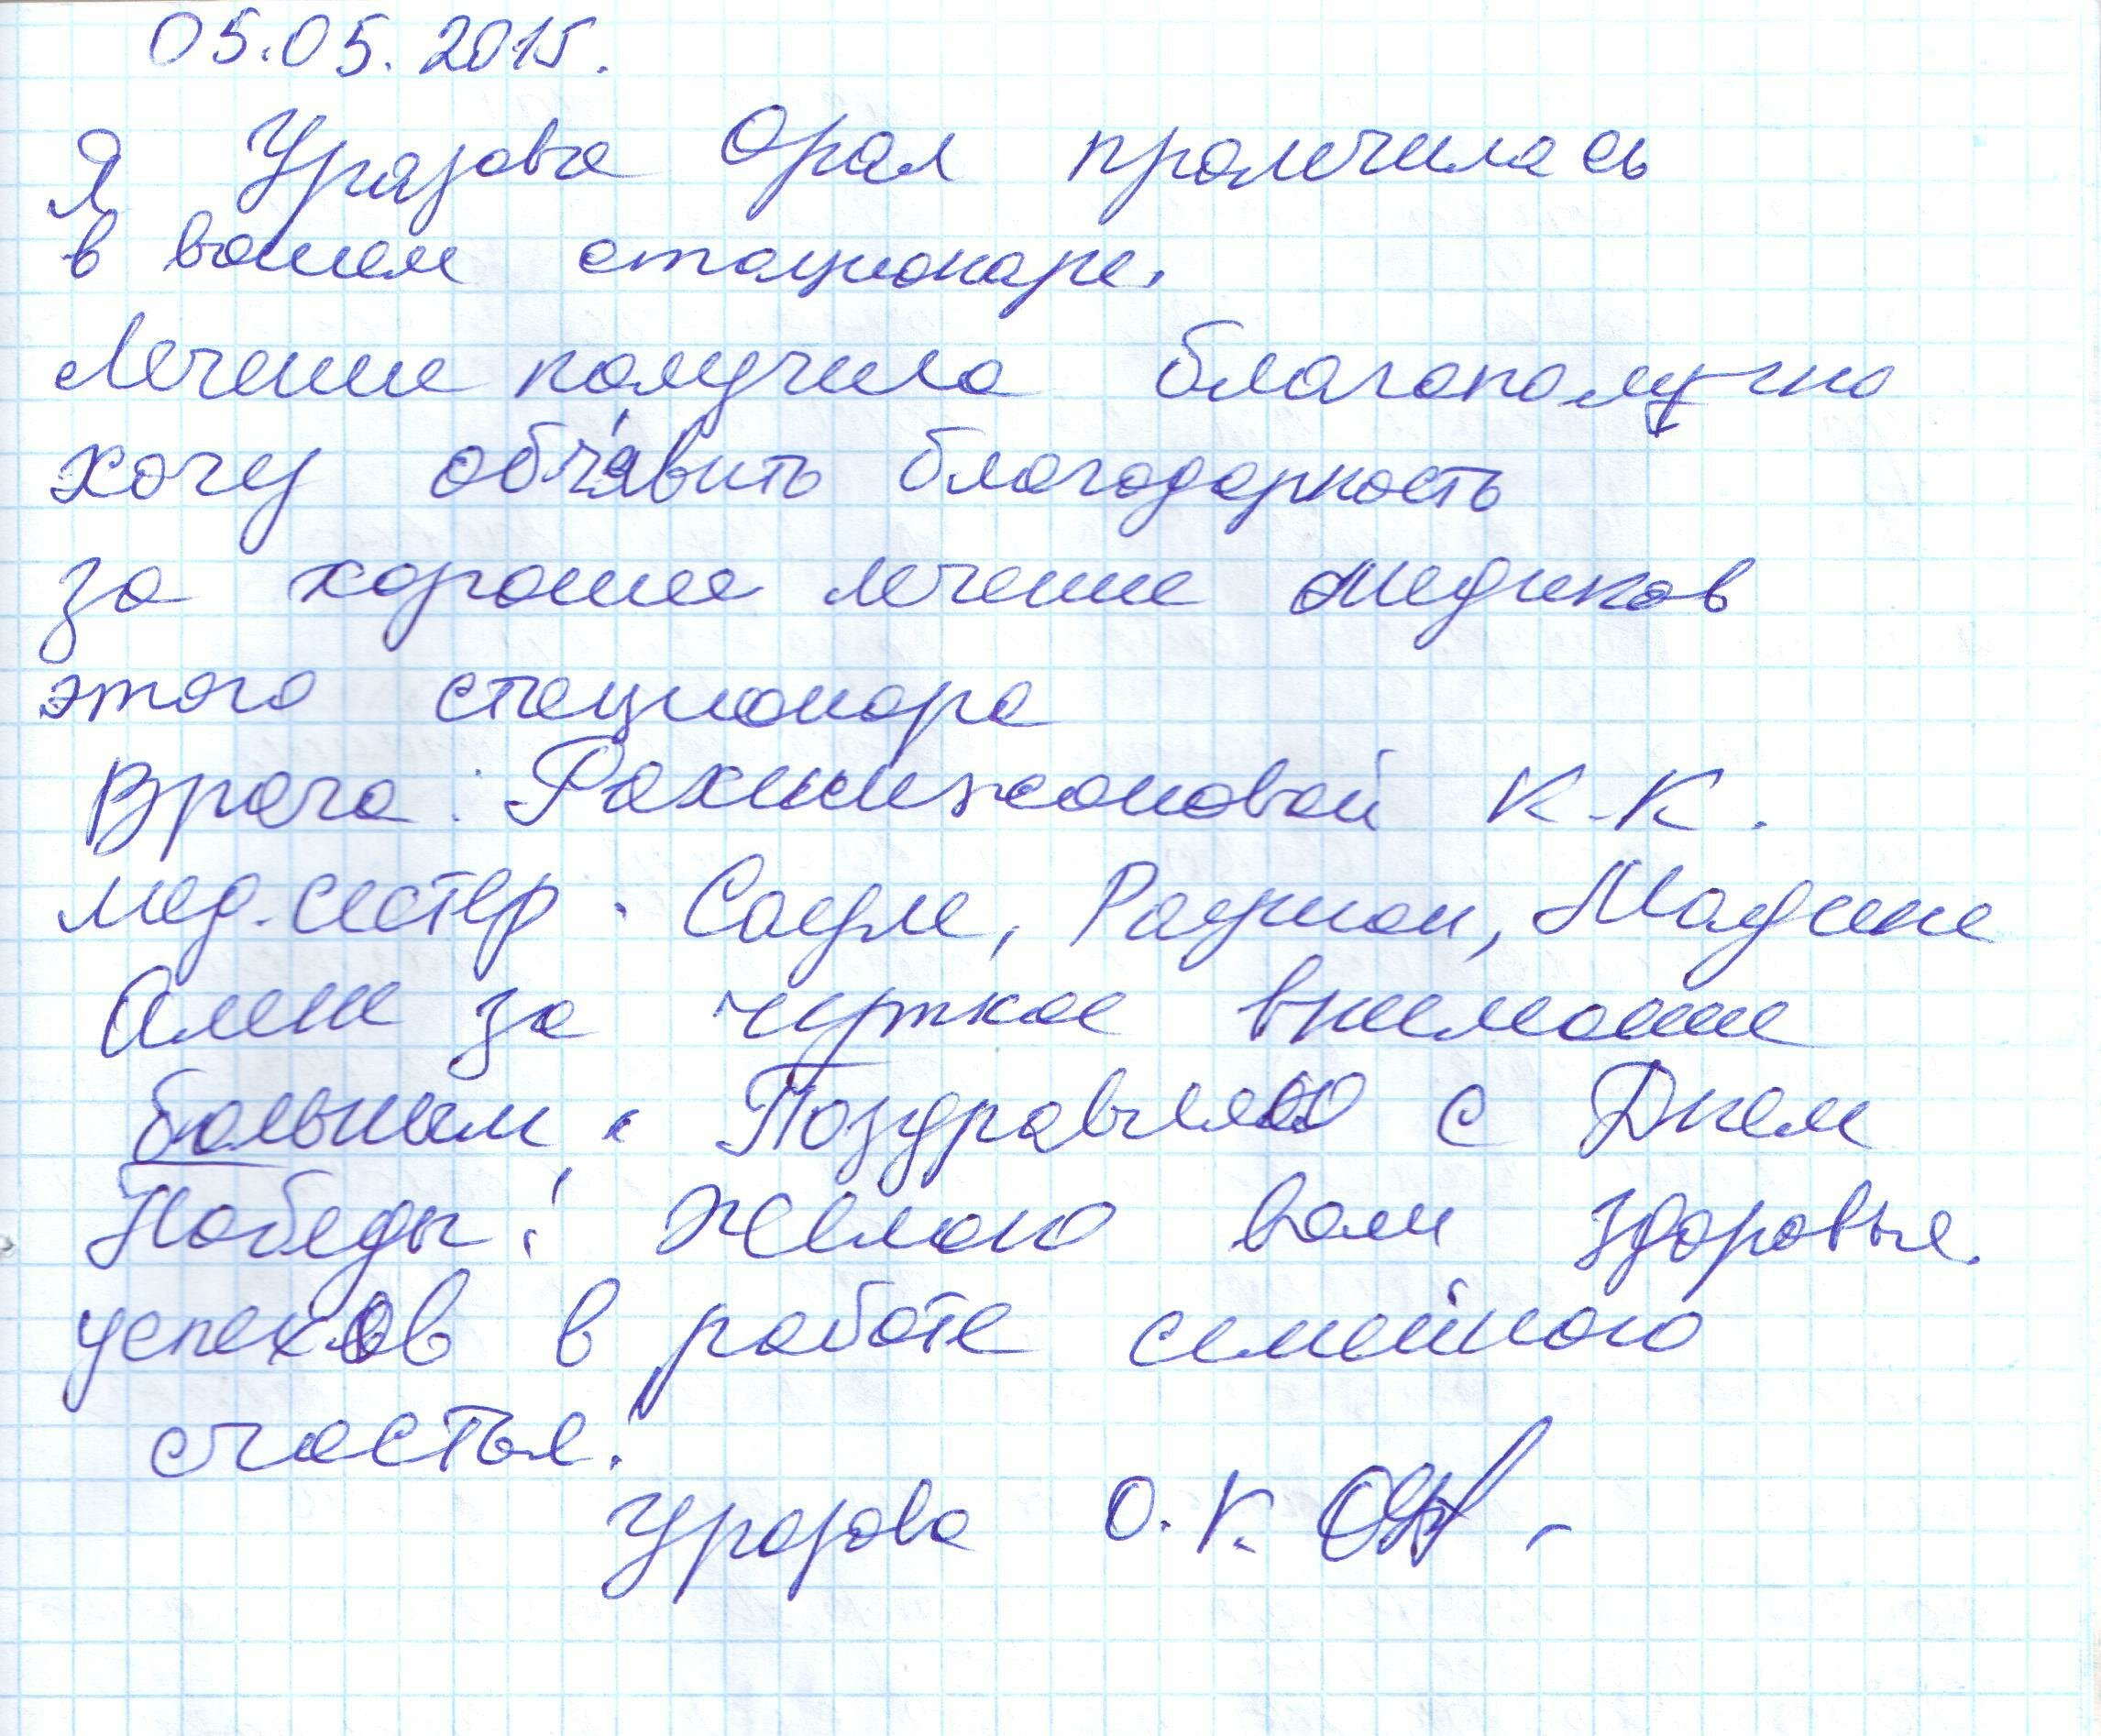 05.05.2015.
Я Уразова Орал пролечилась
в вашем стационаре.
Лечение получила благополучно
хочу объявить благодарность
за хорошее лечение медиков
этого стационара
Врача: Рахимжановой К.К.
мед.сестер. Сауле, Раушан, Мадине
Алене за чуткое внимание
больным. Поздравляю с Днем
Победы! Желаю вам здоровья.
успехов в работе семейного
счастья!
Уразова О.К.